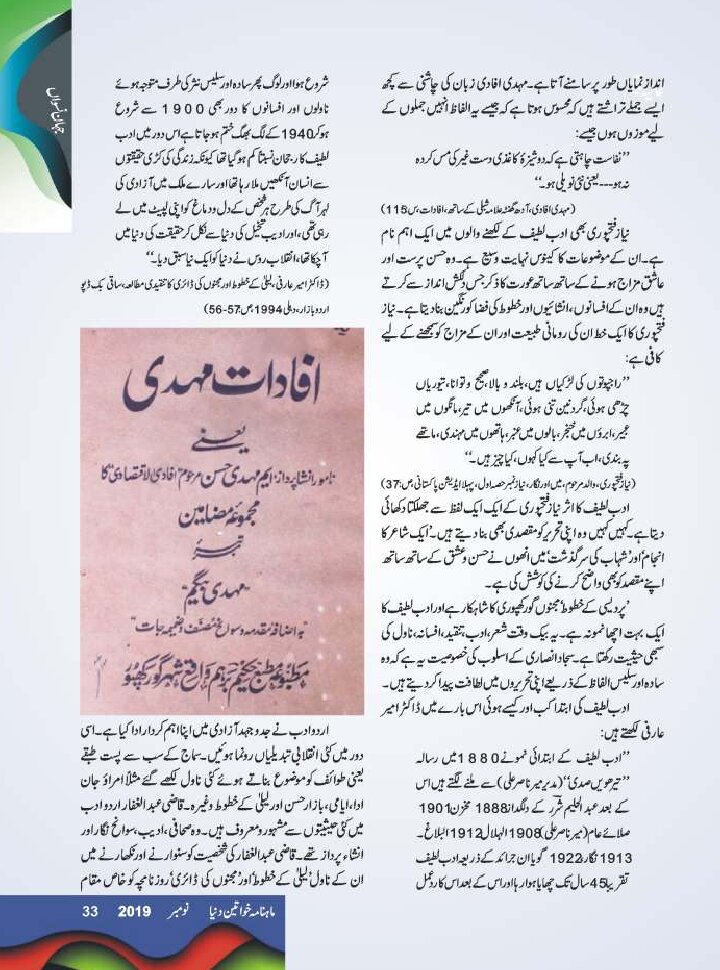 جہانِ نسواں
انداز نمایاں طور پر سامنے آتا ہے۔ مہدی افادی زبان کی چاشنی سے کچھ
ایسے جملے تراشتے ہیں کہ محسوس ہوتا ہے کہ جیسے یہ الفاظ انہیں جملوں کے
لیے موزوں ہوں جیسے:
’’نفاست چاہتی ہے کہ دوشیزۂ کاغذی دست غیر کی مس کردہ
نہ ہو---یعنی نئی نویلی ہو۔‘‘
(مہدی افادی، آدھ گھنٹہ علامہ شبلی کے ساتھ، افادات،ص:115)
نیاز فتحپوری بھی ادب لطیف کے لکھنے والوں میں ایک اہم نام
ہے۔ ان کے موضوعات کا کینوس نہایت وسیع ہے۔ وہ حسن پرست اور
عاشق مزاج ہونے کے ساتھ ساتھ عورت کا ذکر جس دلکش انداز سے کرتے
ہیں وہ ان کے افسانوں، انشائیوں اور خطوط کی فضا کو رنگین بنا دیتا ہے۔ نیاز
فتحپوری کا ایک خط ان کی رومانی طبیعت اور ان کے مزاج کو سمجھنے کے لیے
کافی ہے:
’’راجپوتوں کی لڑکیاں ہیں، بلند و بالا، صحیح و توانا، تیوریاں
چڑھی ہوئی، گردنیں تنی ہوئی، آنکھوں میں تیر، مانگوں میں
عبیر، ابروؤں میں خنجر، بالوں میں عنبر، ہاتھوں میں مہندی، ماتھے
پہ بندی، اب آپ سے کیا کہوں، کیا چیز ہیں۔‘‘
(نیاز فتحپوری، والد مرحوم، میں اور نگار، نیاز نمبر حصہ اول، پہلا ایڈیشن پاکستانی،ص:37)
ادب لطیف کا اثر نیاز فتحپوری کے ایک ایک لفظ سے جھلکتا دکھائی
دیتا ہے۔ کہیں کہیں وہ اپنی تحریر کو مقصدی بھی بنا دیتے ہیں۔ ’ایک شاعر کا
انجام‘ اور ’شہاب کی سرگذشت‘ میں انھوں نے حسن و عشق کے ساتھ ساتھ
اپنے مقصد کو بھی واضح کرنے کی کوشش کی ہے۔
’پردیسی کے خطوط‘ مجنوں گورکھپوری کا شاہکار ہے اور ادب لطیف کا
ایک بہت اچھا نمونہ ہے۔ یہ بیک وقت شعر، ادب، تنقید، افسانہ، ناول کی
سبھی حیثیت رکھتا ہے۔ سجاد انصاری کے اسلوب کی خصوصیت یہ ہے کہ وہ
سادہ اور سلیس الفاظ کے ذریعے اپنی تحریروں میں لطافت پیدا کر دیتے ہیں۔
ادب لطیف کی ابتدا کب اور کیسے ہوئی اس بارے میں ڈاکٹر امیر
عارفی لکھتے ہیں:
’’ادب لطیف کے ابتدائی نمونے 1880 میں رسالہ
’’تیرھویں صدی‘‘ (مدیر میر ناصر علی) سے ملنے لگتے ہیں اس
کے بعد عبدالحلیم شرر کے دلگداز 1888 مخزن 1901
صلائے عام (میر ناصر علی) 1908 الہلال 1912 البلاغ۔
1913 نگار 1922 گویا ان جرائد کے ذریعہ ادب لطیف
تقریباً 45 سال تک چھایا ہوا رہا اور اس کے بعد اس کا ردعمل
شروع ہوا اور لوگ پھر سادہ اور سلیس نثر کی طرف متوجہ ہوئے
ناولوں اور افسانوں کا دور بھی 1900 سے شروع
ہو کر 1940 کے لگ بھگ ختم ہو جاتا ہے اس دور میں ادب
لطیف کا رجحان نسبتاً کم ہو گیا تھا کیونکہ زندگی کی کڑی حقیقتوں
سے انسان آنکھیں ملا رہا تھا اور سارے ملک میں آزادی کی
لہر آگ کی طرح ہر شخص کے دل و دماغ کو اپنی لپیٹ میں لے
رہی تھی، اور ادیب تخیل کی دنیا سے نکل کر حقیقت کی دنیا میں
آچکا تھا، انقلاب روس نے دنیا کو ایک نیا سبق دیا۔‘‘
(ڈاکٹر امیر عارفی، لیلیٰ کے خطوط اور مجنوں کی ڈائری کا تنقیدی مطالعہ، ساقی بک ڈپو
اردو بازار، دہلی 1994،ص:57-56)
افادات مہدی
یعنے
نامور انشا پرداز، ایم مہدی حسن مرحوم "افادی الاقتصادی" کا
مجموعۂ مضامین
"مہدی بیگم"
"بہ اضافہ مقدمہ و سوانح مصنف و ضمیمہ جات"
مطبوعہ مطبع حکیم برہم واقع شہر گورکھپور
اردو ادب نے جدوجہد آزادی میں اپنا اہم کردار ادا کیا ہے۔ اسی
دور میں کئی انقلابی تبدیلیاں رونما ہوئیں۔ سماج کے سب سے پست طبقے
یعنی طوائف کو موضوع بناتے ہوئے کئی ناول لکھے گئے مثلاً امراؤ جان
ادا، ایامی، بازار حسن اور لیلیٰ کے خطوط وغیرہ۔ قاضی عبدالغفار اردو ادب
میں کئی حیثیتوں سے مشہور و معروف ہیں۔ وہ صحافی، ادیب، سوانح نگار اور
انشاء پرداز تھے۔ قاضی عبدالغفار کی شخصیت کو سنوارنے اور نکھارنے میں
ان کے ناول ’لیلیٰ کے خطوط‘ اور ’مجنوں کی ڈائری‘ روزنامچہ کو خاص مقام
ماہنامہ خواتین دنیا نومبر 2019 33